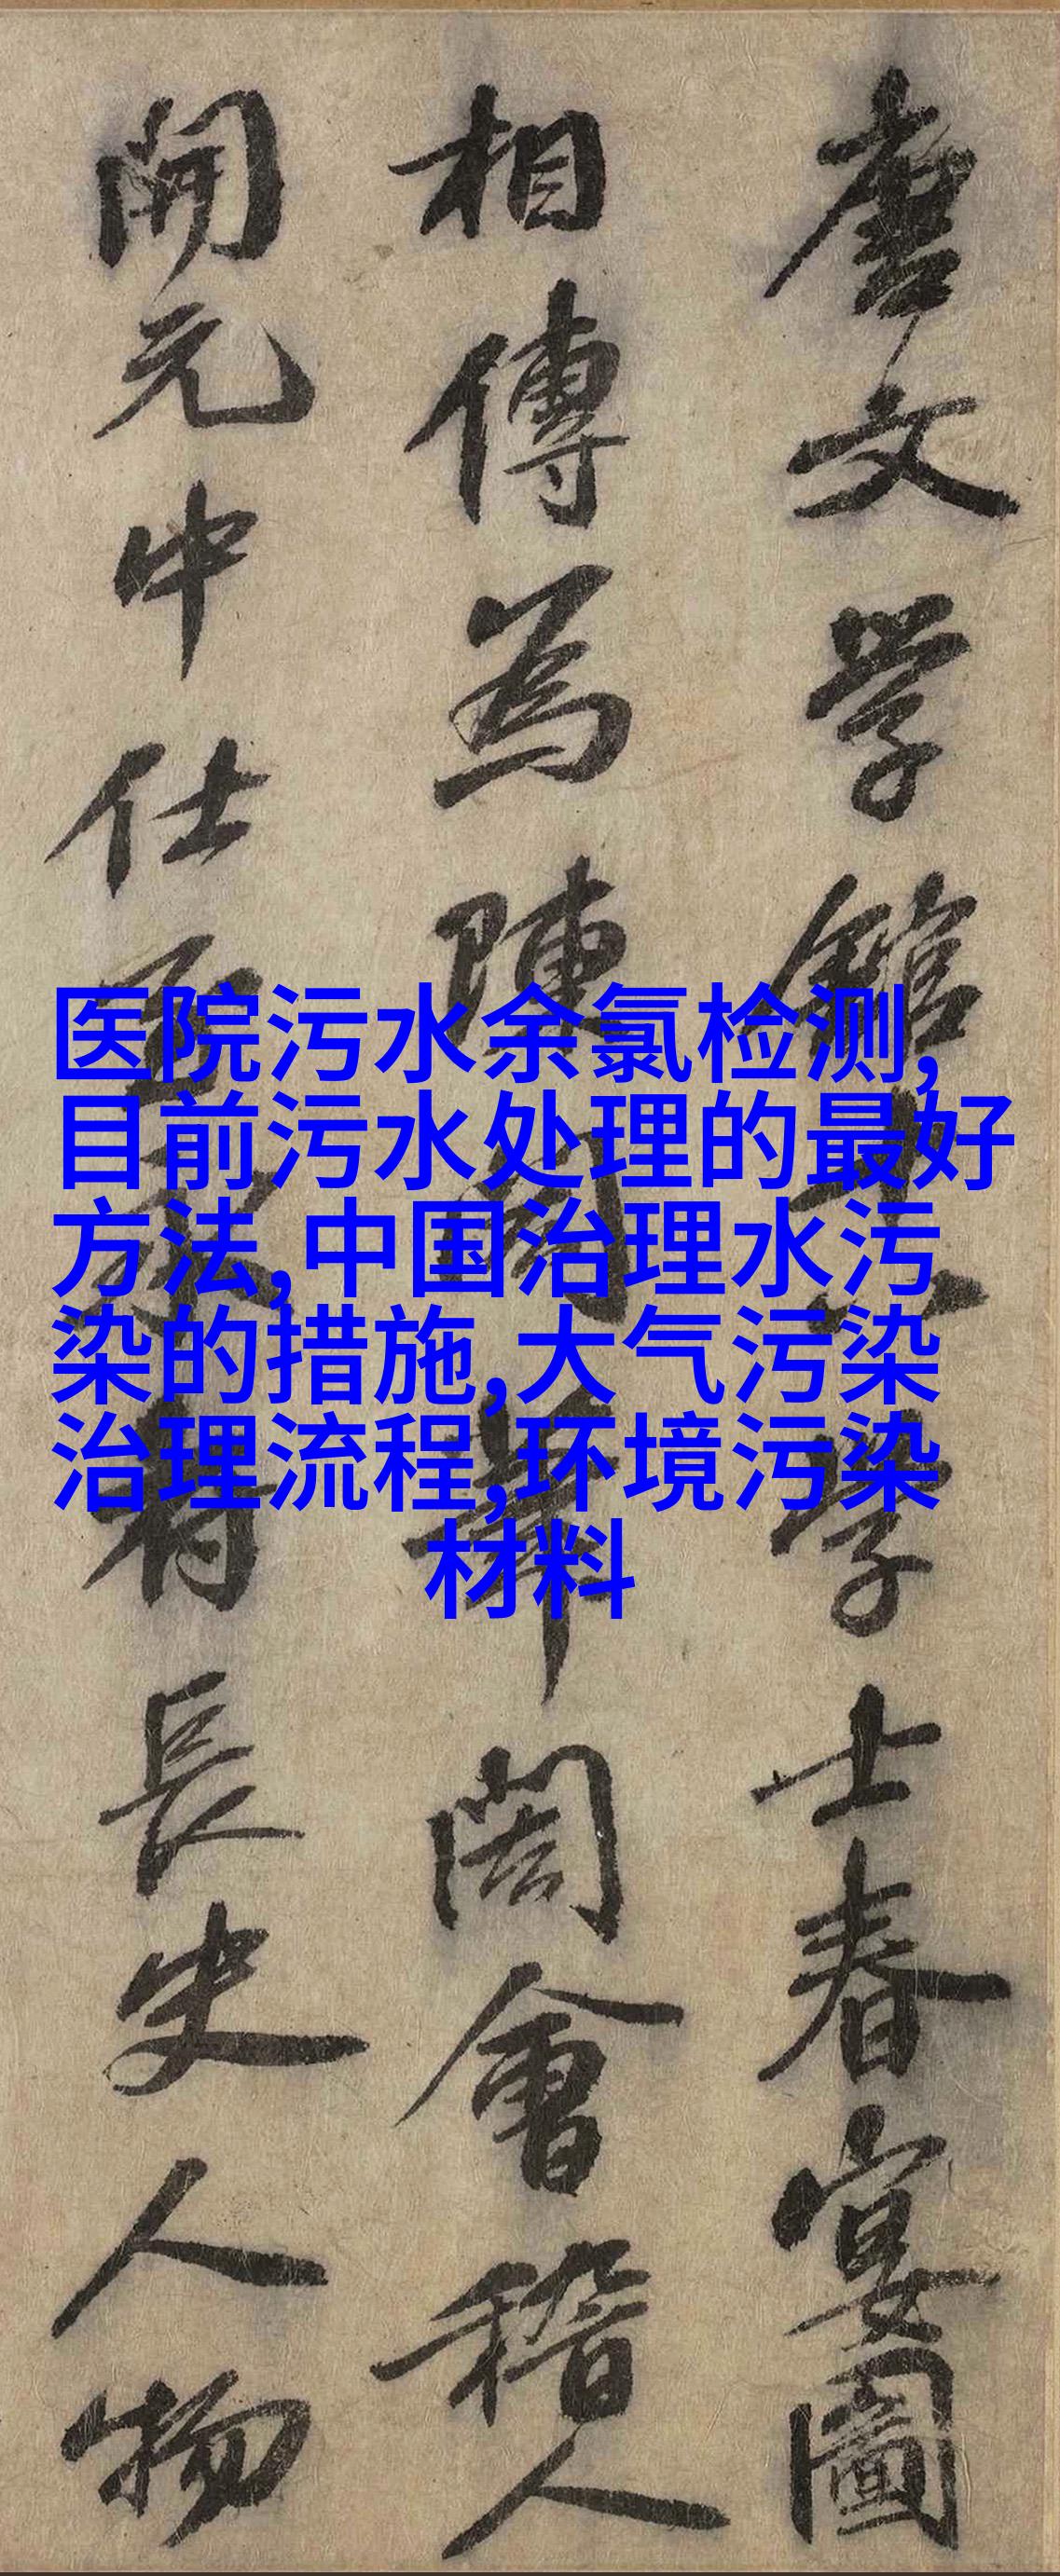 唐文学館十八学士春宴圖
相傳為陳閎筆閎會稽人
開元中仕至府長史人物
医院污水余氯检测,
目前污水处理的最好
方法,中国治理水污
染的措施,大气污染
治理流程,环境污染
材料